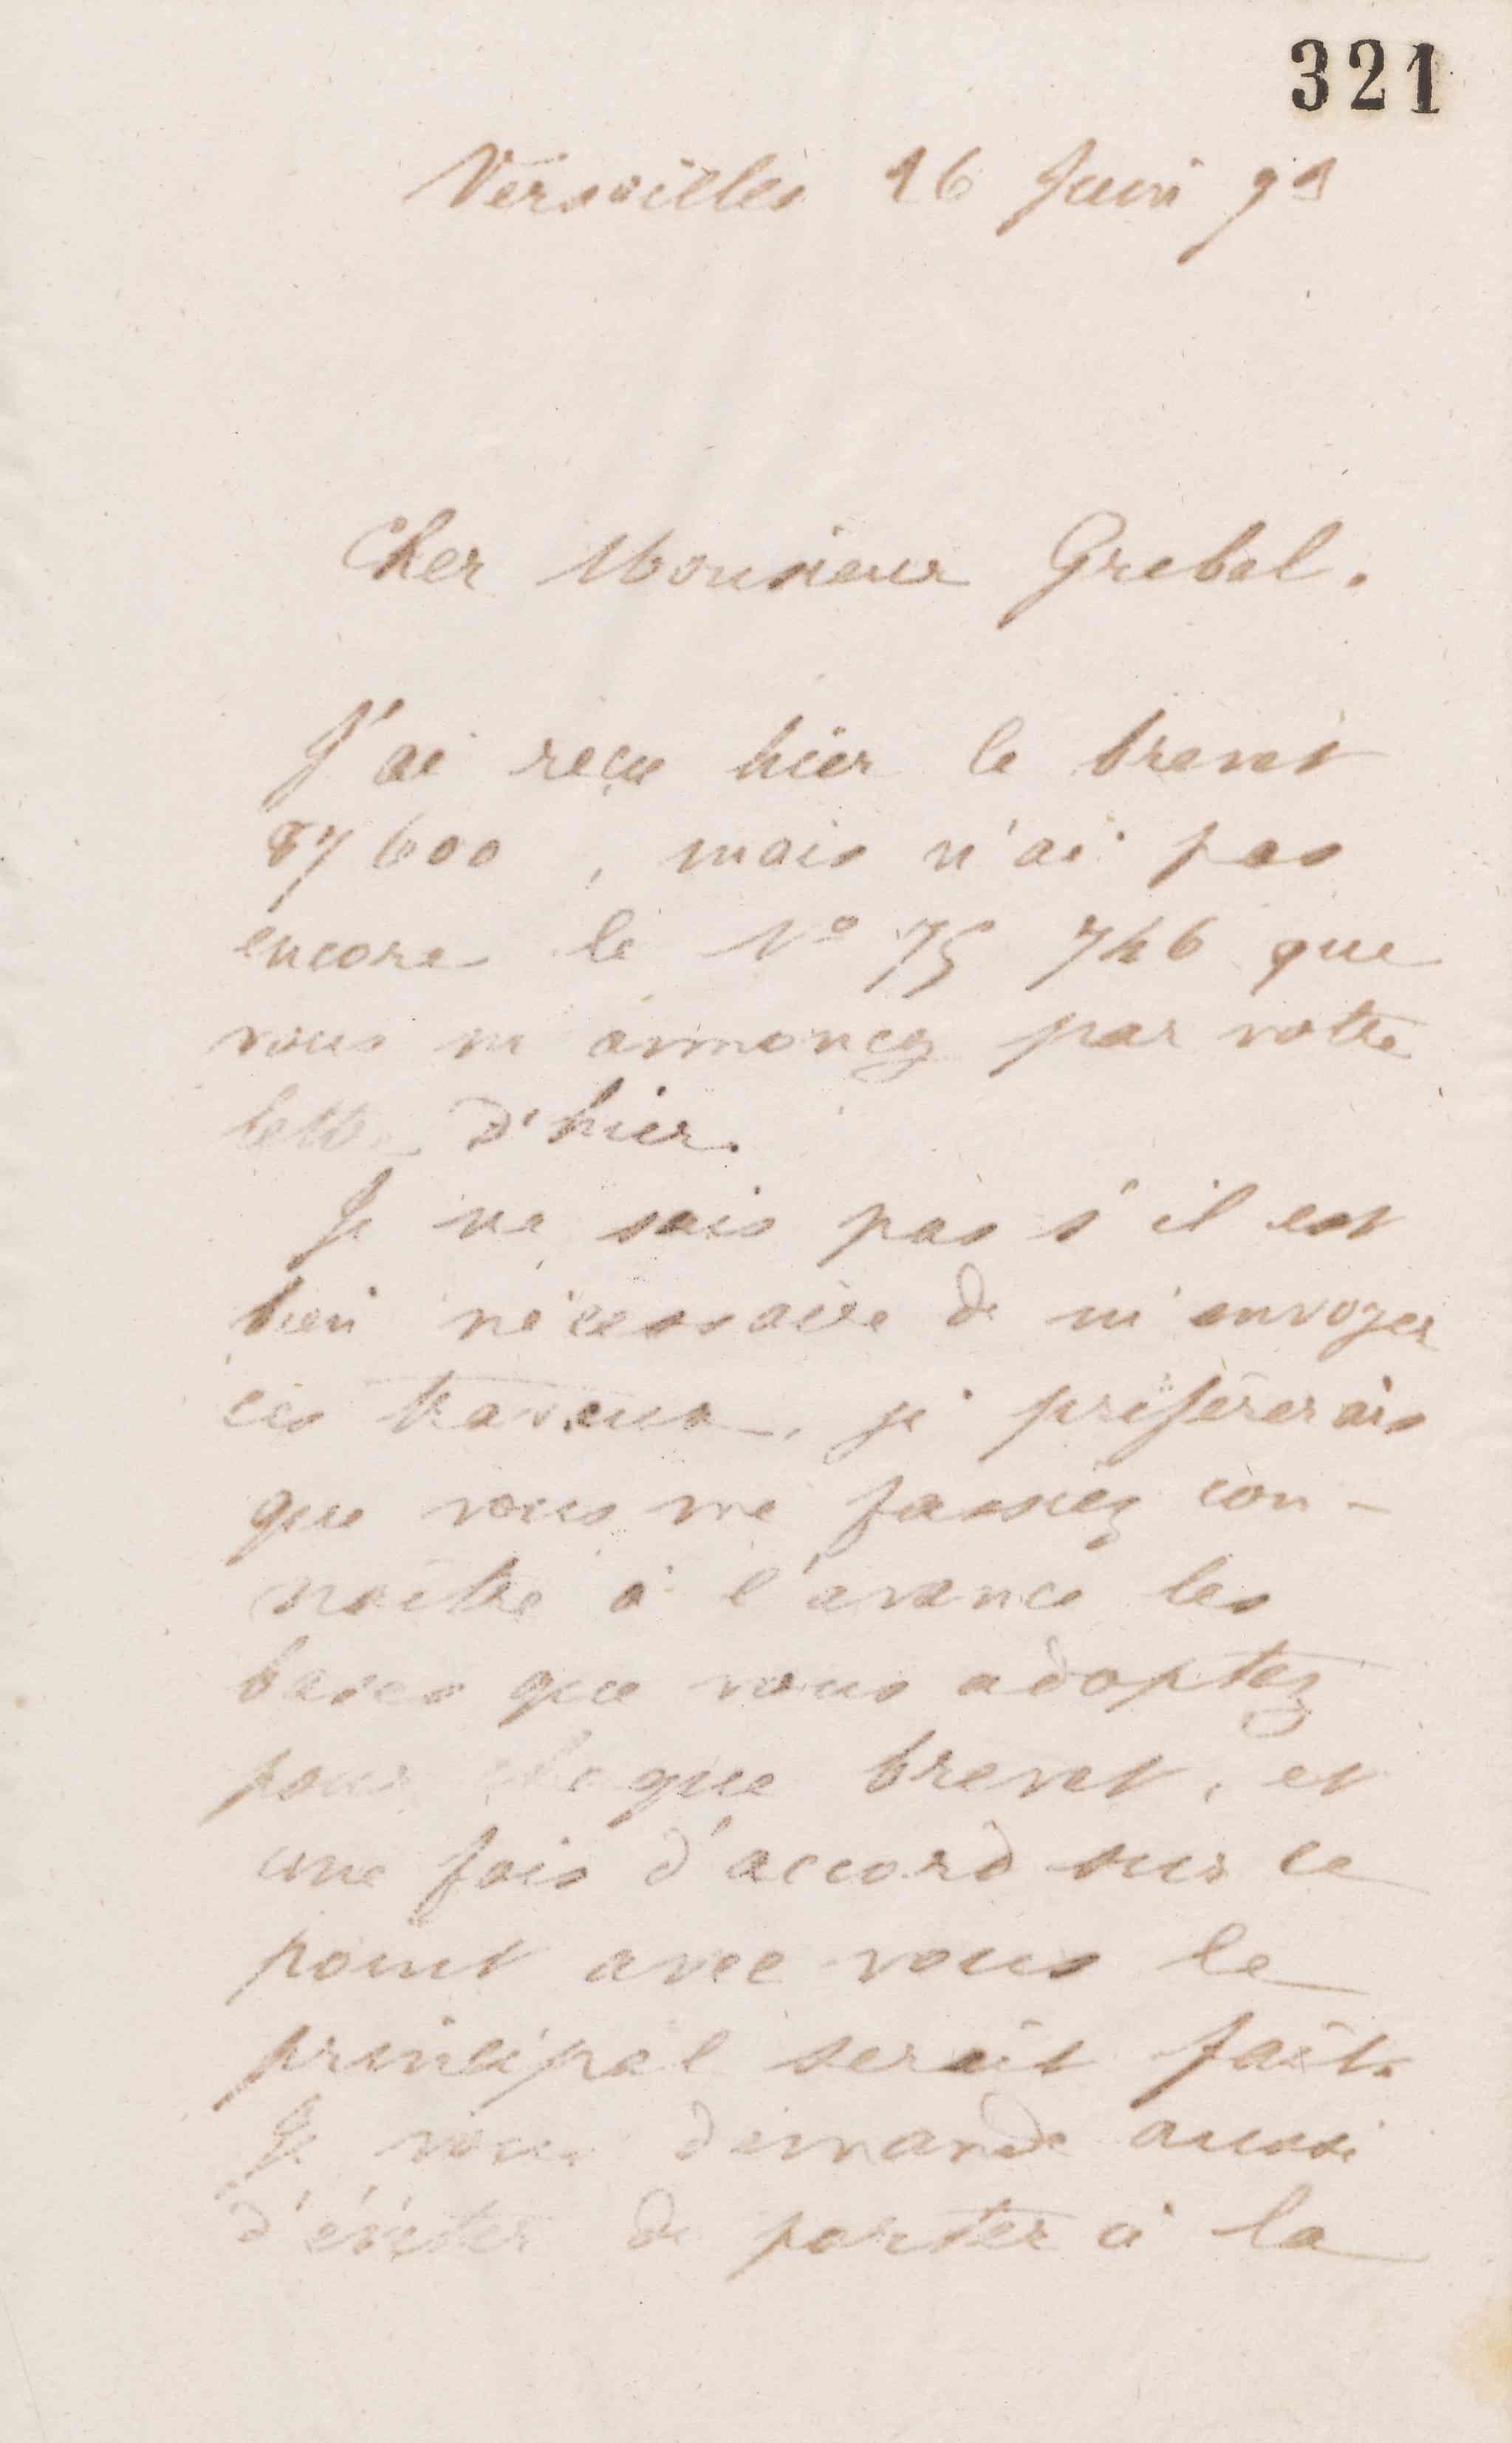 321
Versailles 16 Juin 91
Cher Monsieur Grebel.
J'ai reçu hier le brevet
87 600, mais n'ai pas
encore le No 75 746 que
vous m'annoncez par votre
lettre d'hier.
Je ne sais pas s'il est
bien nécessaire de m'envoyer
ces travaux, je préférerais
que vous me fassiez con-
naître à l'avance les
bases que vous adoptez
pour chaque brevet, et
une fois d'accord sur ce
point avec vous le
principal serait fait.
Je vous demande aussi
d'éviter de porter à la